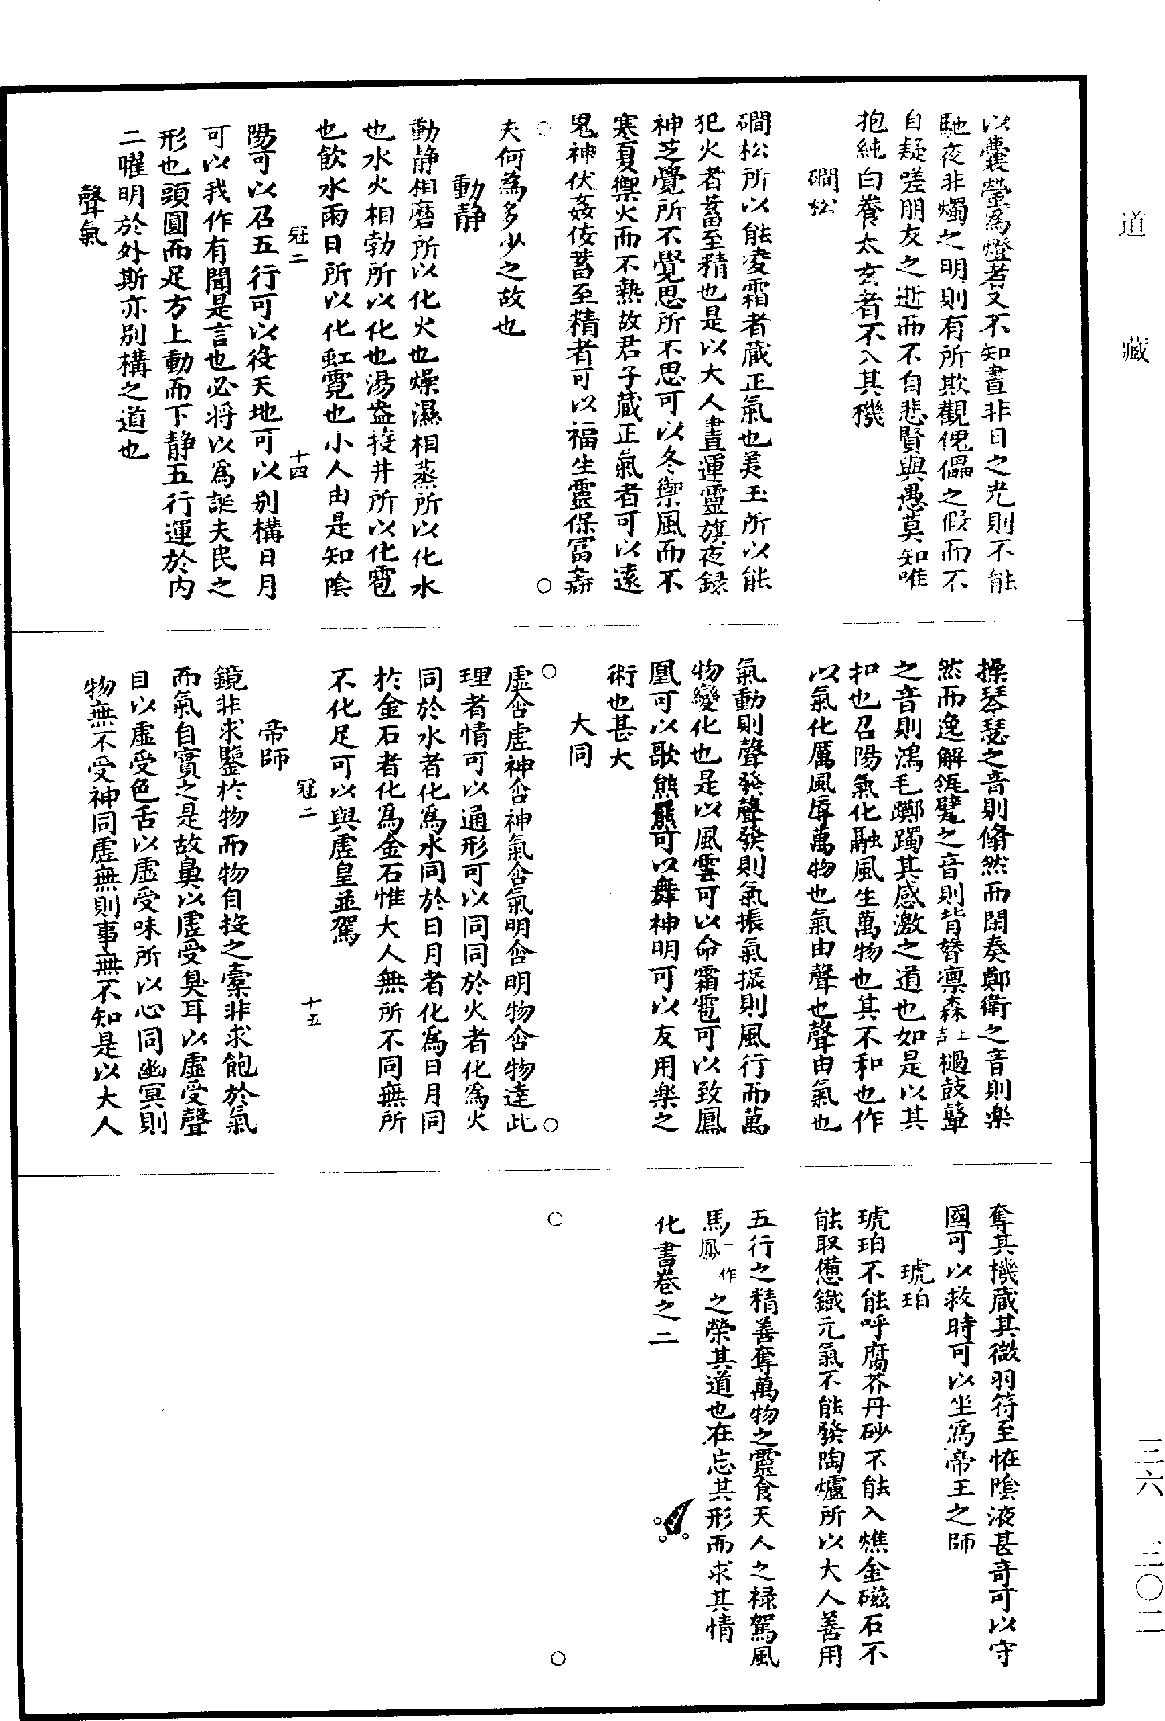 道藏
三六 三〇二
以囊螢爲燈者又不知晝非日之光則不能
馳夜非燭之明則有所欺觀傀儡之假而不
自疑嗟朋友之逝而不自悲賢與愚莫知唯
抱純白養太玄者不入其機
磵松
磵松所以能凌霜者藏正氣也美玉所以能
犯火者蓄至精也是以大人晝運靈旗夜録
神芝覺所不覺思所不思可以冬禦風而不
寒夏禦火而不熱故君子藏正氣者可以遠
鬼神伏姦佞蓄至精者可以福生靈保富壽
夫何爲多少之故也
動靜
動靜相磨所以化火也燥濕相蒸所以化水
也水火相勃所以化也湯盎投井所以化雹
也飲水雨日所以化虹霓也小人由是知陰
冠二 十四
陽可以召五行可以役天地可以别構日月
可以我作有聞是言也必將以爲誕夫民之
形也頭圓而足方上動而下靜五行運於内
二曜明於外斯亦别構之道也
聲氣
操琴瑟之音則翛然而閑奏鄭衛之音則樂
然而逸解瓴甓之音則背膂凛森上聲撾鼓鼙
之音則鴻毛躑躅其感激之道也如是以其
和也召陽氣化融風生萬物也其不和也作
以氣化厲風辱萬物也氣由聲也聲由氣也
氣動則聲發聲發則氣振氣振則風行而萬
物變化也是以風雲可以命霜雹可以致鳳
凰可以歌熊羆可以舞神明可以友用樂之
術也甚大
大同
虚含虚神含神氣含氣明含明物含物達此
理者情可以通形可以同同於火者化爲火
同於水者化爲水同於日月者化爲日月同
於金石者化爲金石惟大人無所不同無所
不化足可以與虚皇並駕
冠二 十五
帝師
鏡非求鑒於物而物自投之橐非求飽於氣
而氣自實之是故鼻以虚受臭耳以虚受聲
目以虚受色舌以虚受味所以心同幽冥則
物無不受神同虚無則事無不知是以大人
奪其機藏其微羽符至恠陰液甚奇可以守
國可以救時可以坐爲帝王之師
琥珀
琥珀不能呼腐芥丹砂不能入燋金磁石不
能取憊鐵元氣不能發陶爐所以大人善用
五行之精善奪萬物之靈食天人之禄駕風
馬一作鳳之榮其道也在忘其形而求其情
化書卷之二